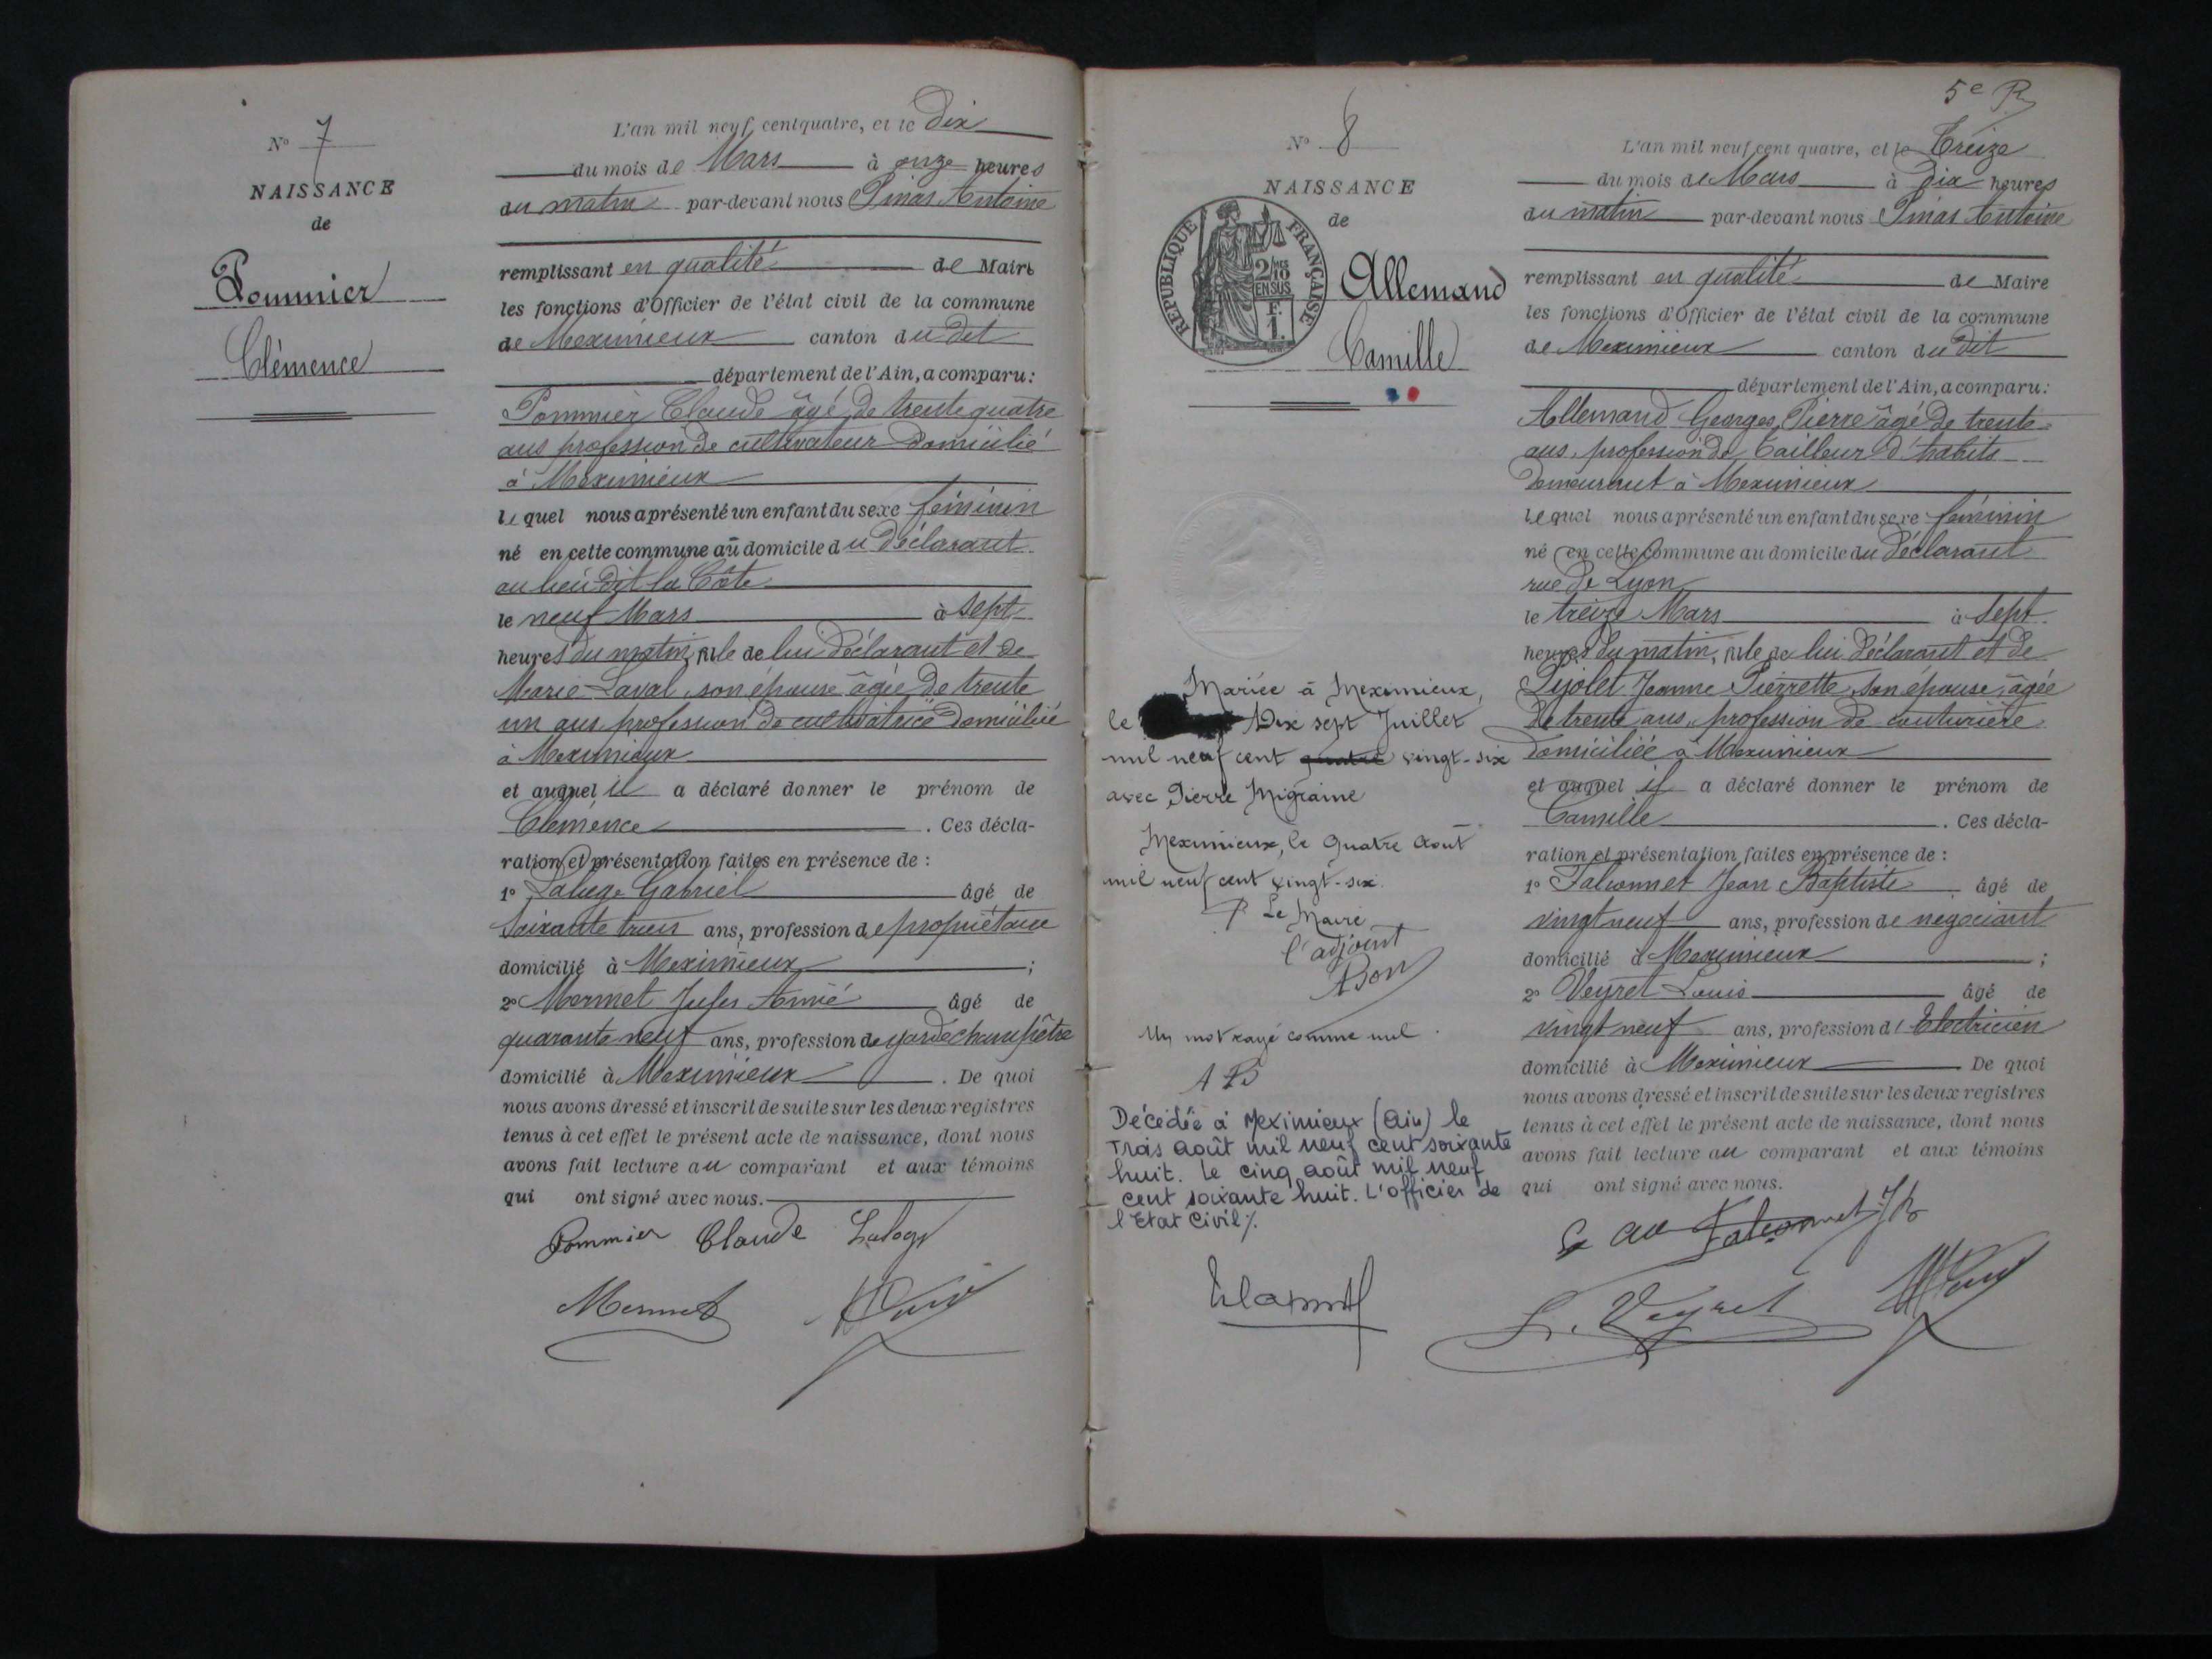 N° 7
NAISSANCE
de
Pommier
Clémence
L'an mil neuf centquatre, et le Dix
du mois de Mars à onze heures
du matin par-devant nous Pinas Antoine
remplissant en qualité de Maire
les fonctions d'Officier de l'état civil de la commune
de Meximieux canton du dit
département de l'Ain, a comparu:
Pommier Claude âgé de trente quatre
ans profession de cultivateur domicilié
à Meximieux
lequel nous a présenté un enfant du sexe féminin
né en cette commune au domicile du déclarant
au lieu dit la Côte
le neuf Mars à sept
heures du matin, fille de lui déclarant et de
Marie Laval, son épouse âgée de trente
un ans profession de cultivatrice domiciliée
à Meximieux
et auquel il a déclaré donner le prénom de
Clémence . Ces décla-
ration et présentation faites en présence de :
1° Laluge Gabriel âgé de
soixante trois ans, profession de propriétaire
domicilié à Meximieux ;
2° Mermet Jules Aimé âgé de
quarante neuf ans, profession de garde champêtre
domicilié à Meximieux . De quoi
nous avons dressé et inscrit de suite sur les deux registres
tenus à cet effet le présent acte de naissance, dont nous
avons fait lecture au comparant et aux témoins
qui ont signé avec nous.
Pommier Claude
Mermet
5e R
N° 8
NAISSANCE
de
RÉPUBLIQUE FRANÇAISE
2/10 MES
EN SUS
F.
1.
Allemand
Camille
Mariée à Meximieux,
le Dix sept Juillet
mil neuf cent quatre vingt-six
avec Pierre Migraine
Meximieux, le quatre Août
mil neuf cent vingt-six.
P Le Maire
l'adjoint
ABon
Un mot rayé comme nul.
AB
Décédée à Meximieux (Ain) le
Trois août mil neuf cent soixante
huit. Le cinq août mil neuf
cent soixante huit. L'officier de
l'Etat Civil ./.
L'an mil neuf cent quatre, et le Treize
du mois de Mars à Dix heures
du matin par-devant nous Pinas Antoine
remplissant en qualité de Maire
les fonctions d'Officier de l'état civil de la commune
de Meximieux canton du dit
département de l'Ain, a comparu:
Allemand Georges, Pierre âgé de trente
ans, profession de tailleur d'habits
demeurant à Meximieux
lequel nous a présenté un enfant du sexe féminin
né en cette commune au domicile du déclarant
rue de Lyon
le treize Mars à sept
heures du matin, fille de lui déclarant et de
Lyolet Jeanne Pierrette, son épouse, âgée
de trente ans, profession de couturière
domiciliée à Meximieux
et auquel il a déclaré donner le prénom de
Camille . Ces décla-
ration et présentation faites en présence de :
1° Falconnet Jean Baptiste âgé de
vingt neuf ans, profession de négociant
domicilié à Meximieux ;
2° Veyret Louis âgé de
vingt neuf ans, profession d' Electricien
domicilié à Meximieux De quoi
nous avons dressé et inscrit de suite sur les deux registres
tenus à cet effet le présent acte de naissance, dont nous
avons fait lecture au comparant et aux témoins
qui ont signé avec nous.
Falconnet JB
L. Veyret